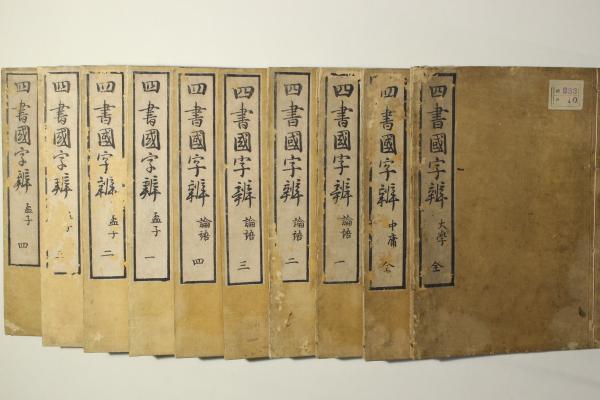 四書國字辨 大學 全
933
10
四書國字辨 中庸 全
四書國字辨 論語 一
四書國字辨 論語 二
四書國字辨 論語 三
四書國字辨 論語 四
四書國字辨 孟子 一
四書國字辨 孟子 二
四書國字辨 三
四書國字辨 孟子 四